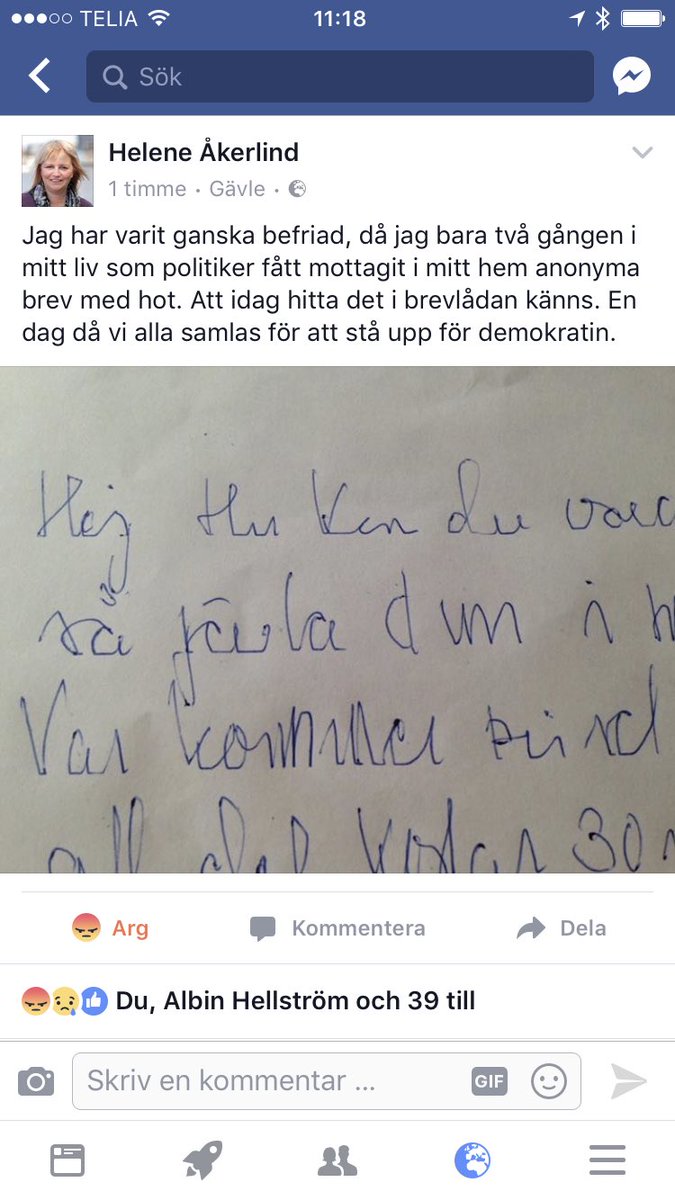 TELIA 11:18
Sök
Helene Åkerlind
1 timme · Gävle ·
Jag har varit ganska befriad, då jag bara två gången i
mitt liv som politiker fått mottagit i mitt hem anonyma
brev med hot. Att idag hitta det i brevlådan känns. En
dag då vi alla samlas för att stå upp för demokratin.
Hej Hur kan du vara
så jävla dum i
Var kommer
all det kostar 30
Arg Kommentera Dela
Du, Albin Hellström och 39 till
Skriv en kommentar ... GIF